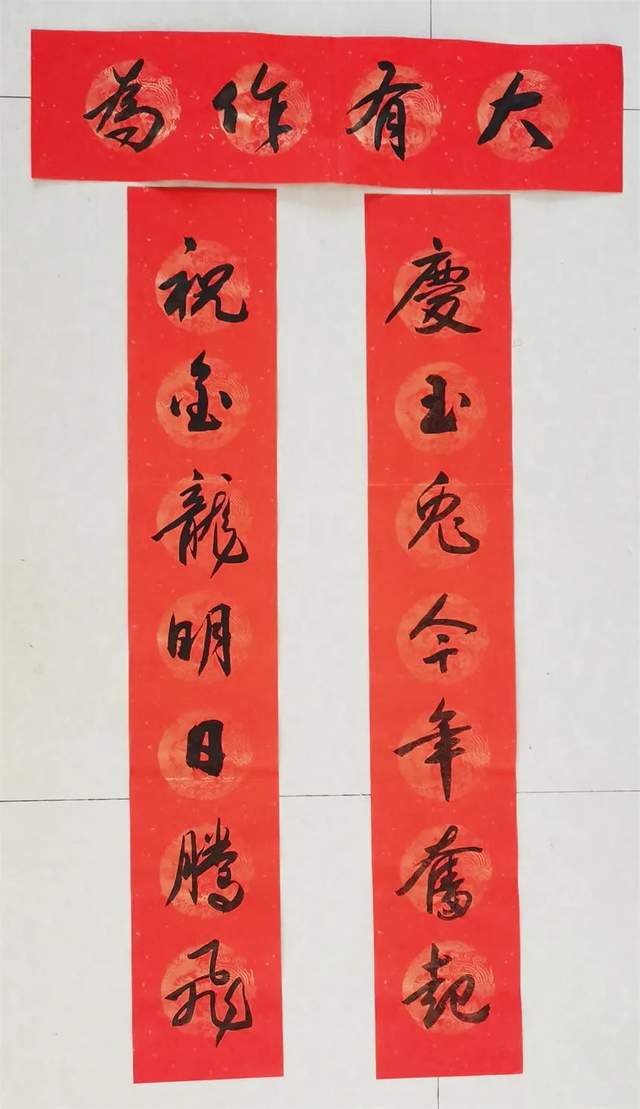 大有作為
慶玉兔今年奮起
祝金龍明日騰飛